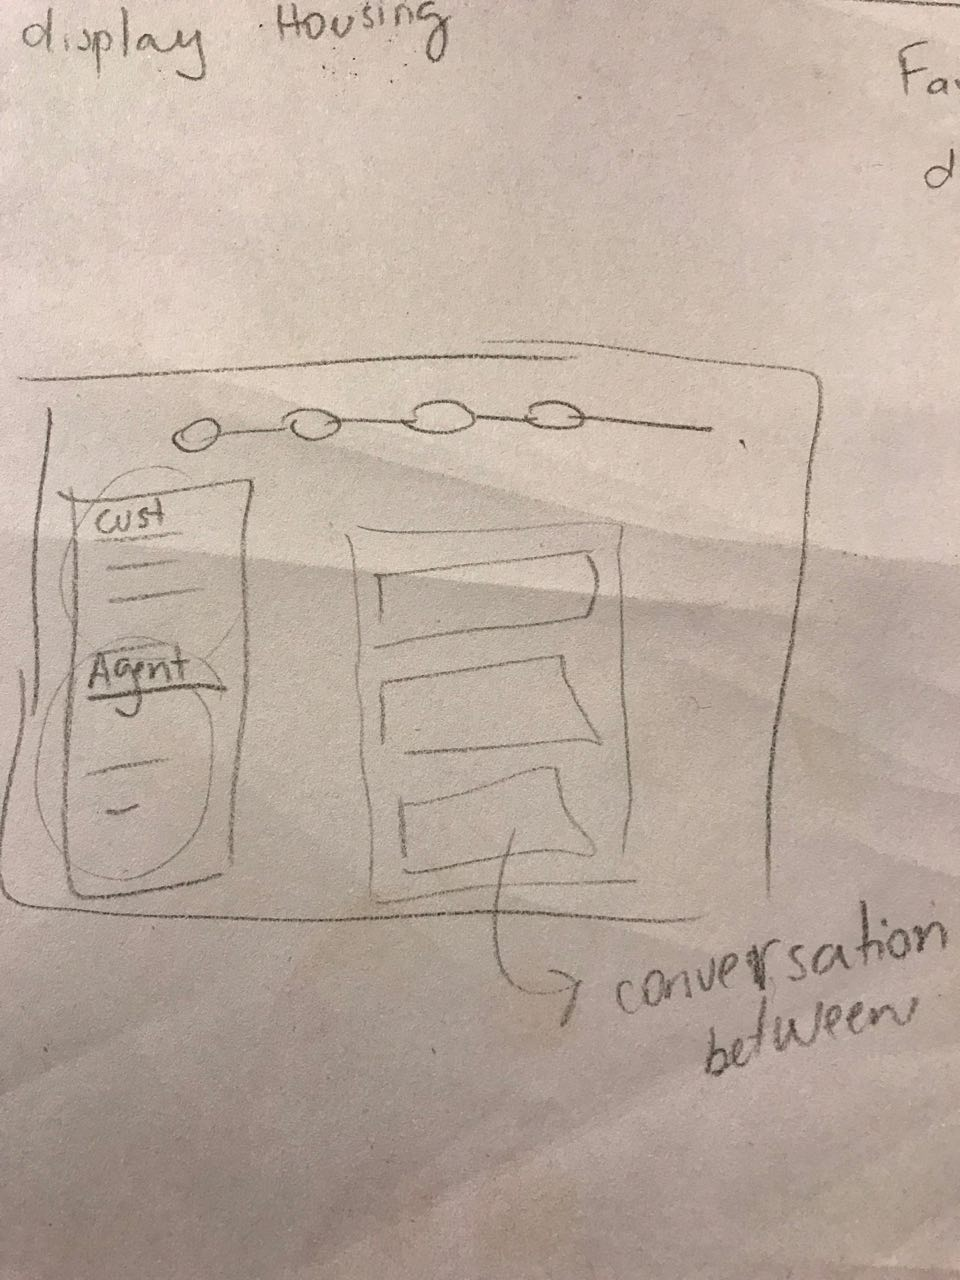 display Housing
Fav
d
Cust
Agent
conversation
between